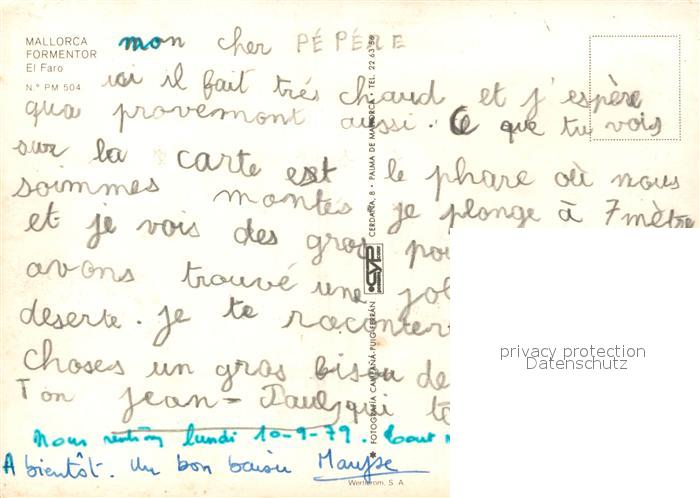 MALLORCA
FORMENTOR
El Faro
N.º PM 504
mon cher PÉPÉRE
ici il fait trés chaud et j'espère
qua provemont aussi. Ce que tu vois
sur la carte est le phare où nous
soimmes montés je plonge à 7 mètre
et je vois des gros
avons trouvé une
deserte. je te raconter
choses un gros bisou de
Ton Jean-Paul qui te
Nous rentrons lundi 10-9-79. Tout
A bientôt. Un bon baiser Maryse
FOTOGRAFÍA CAMPAÑÁ-PUIG-FERRÁN
CYP
CERDAÑA, 8 · PALMA DE MALLORCA · TEL. 22 63 56
privacy protection
Datenschutz